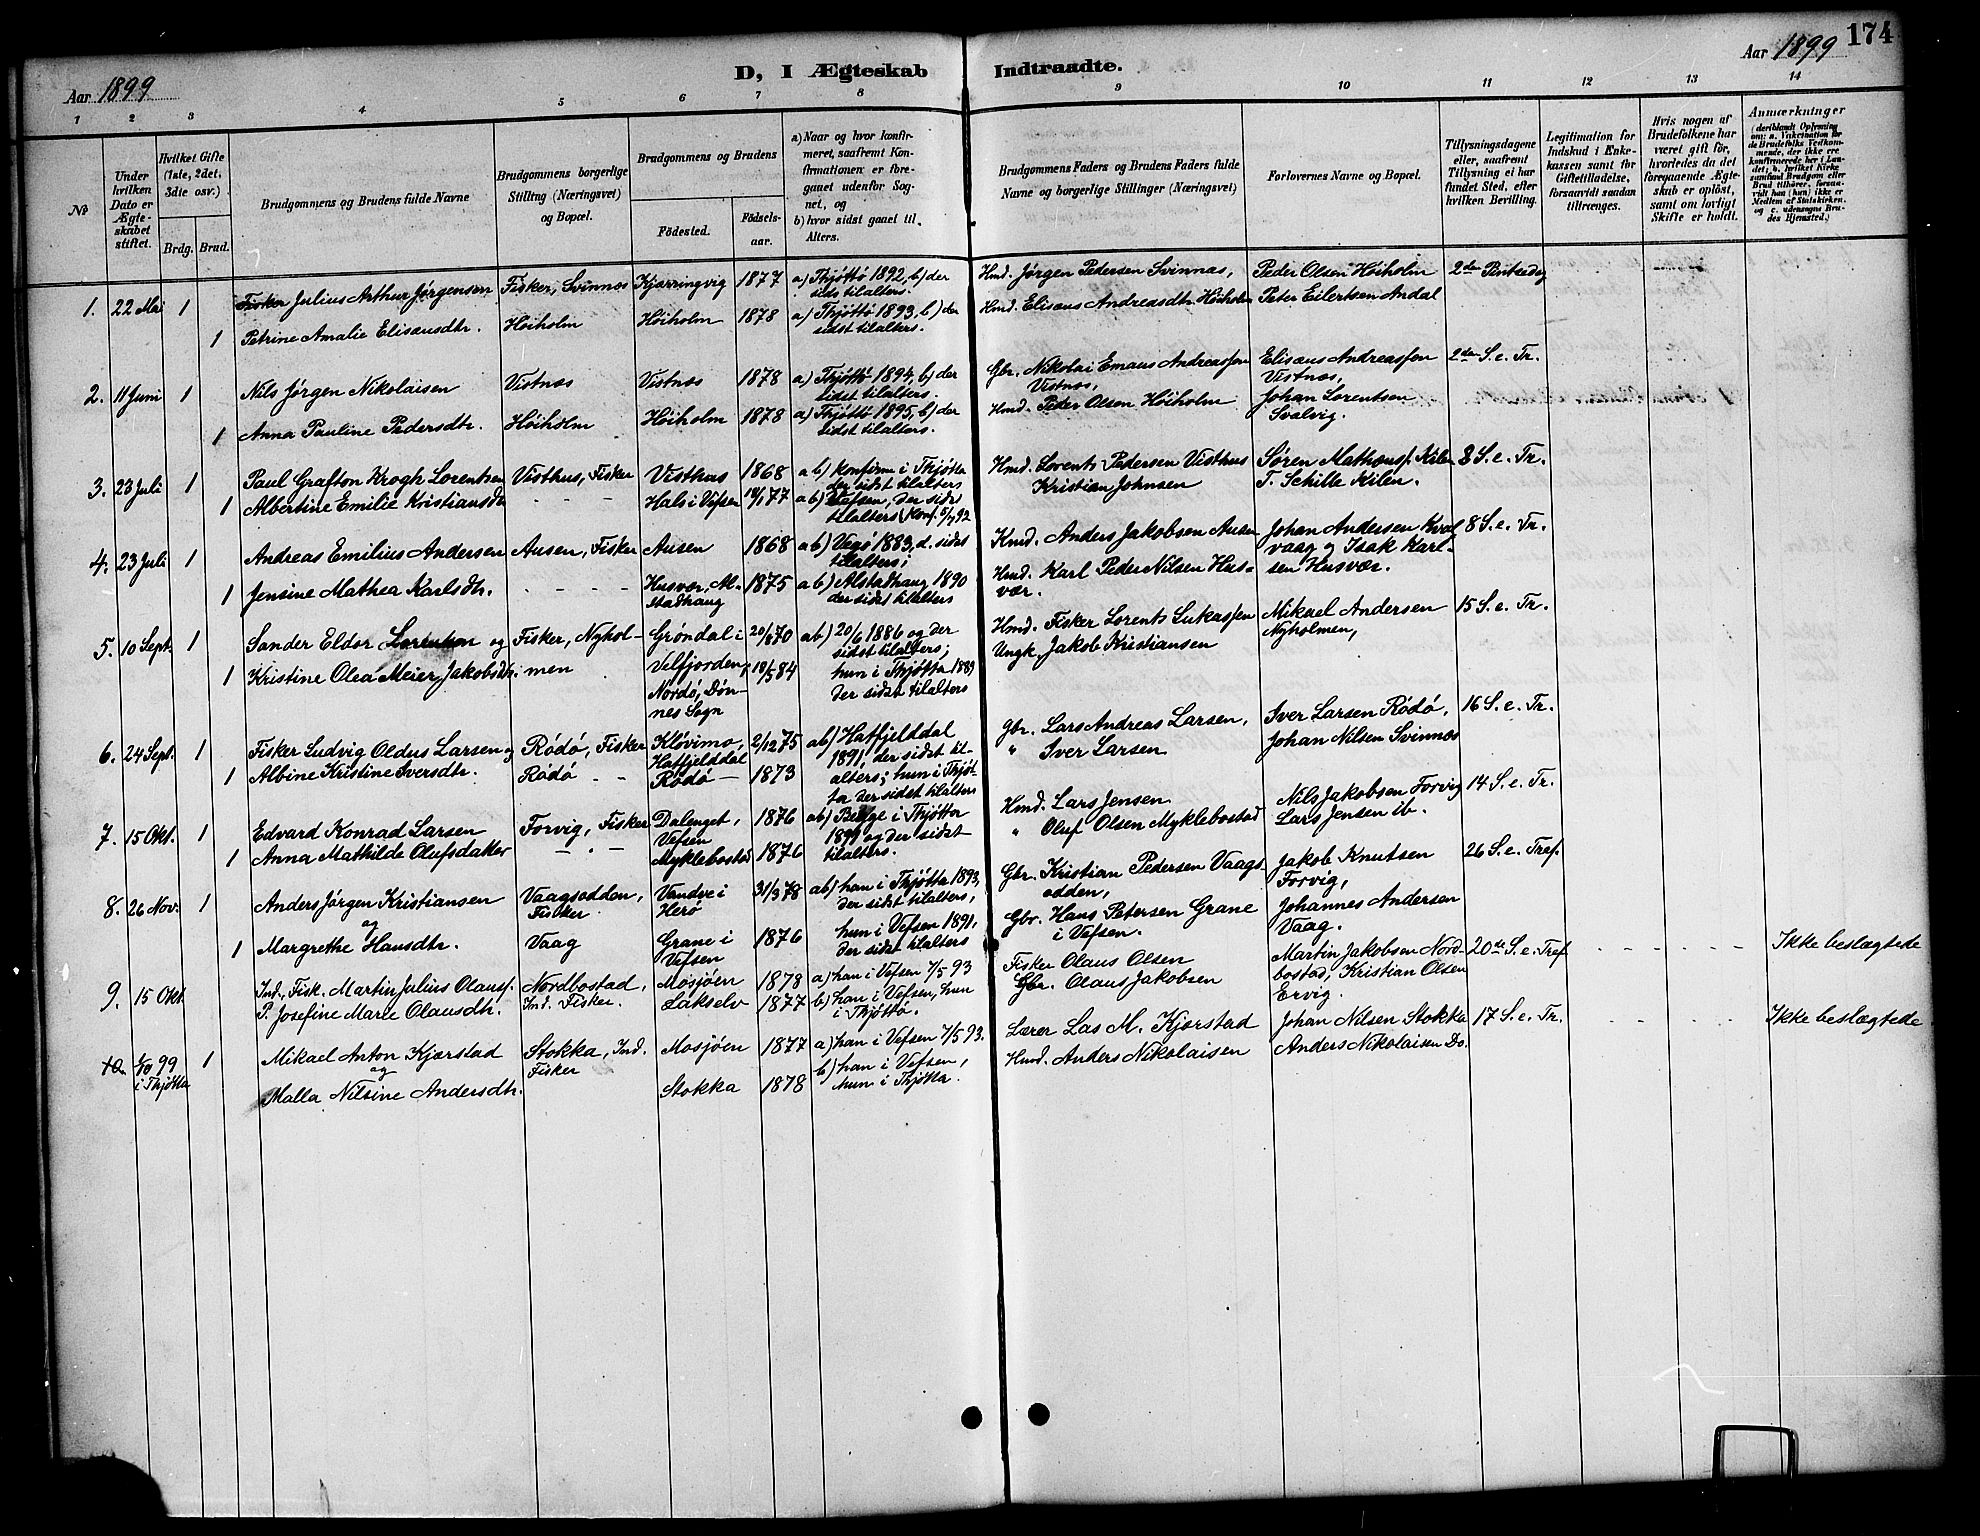 174
D, I Ægteskab Indtraadte.
Aar 1899
Aar 1899
1 2 3 4 5 6 7 8 9 10 11 12 13 14
No
Under hvilken Dato er Ægteskabet stiftet.
Hvilket Gifte (1ste, 2det, 3die osv.)
Brdg. Brud.
Brudgommens og Brudens fulde Navne
Brudgommens borgerlige Stilling (Næringsvei) og Bopæl.
Brudgommens og Brudens
Fødested.
Fødsels-aar.
a) Naar og hvor konfirmeret, saafremt Konfirmationen er foregaaet udenfor Sognet, og
b) hvor sidst gaaet til Alters.
Brudgommens Faders og Brudens Faders fulde Navne og borgerlige Stillinger (Næringsvei)
Forlovernes Navne og Bopæl.
Tillysningsdagene eller, saafremt Tillysning ei har fundet Sted, efter hvilken Bevilling.
Legitimation for Indskud i Enkekassen samt for Giftetilladelse, forsaavidt saadan tiltrænges.
Hvis nogen af Brudefolkene har været gift før, hvorledes da det foregaaende Ægteskab er opløst, samt om lovligt Skifte er holdt.
Anmærkninger
(deriblandt Oplysning om: a. Vakcination for de Brudefolks Vedkommende, der ikke ere konfirmerede her i Landet; b. hvilket Kirkesamfund Brudgom eller Brud tilhører, forsaavidt han (hun) ikke er Medlem af Statskirken, og c. udensogns Brudes Hjemsted.)
1. 22 Mai 1 Fisker Julius Arthur Jørgensen Fisker, Svinnæs Kjærringvig 1877 a) Thjøttø 1892, b) der sidst tilalters. Hmd. Jørgen Pedersen Svinnæs, Peder Olsen Høiholm 2den Pintsedag
1 Petrine Amalie Elisæusdtr. Høiholm Høiholm 1878 a) Thjøttø 1893, b) der sidst tilalters. Hmd. Elisæus Andreasdtr. Høiholm Peter Eilertsen Andal
2. 11 Juni 1 Nils Jørgen Nikolaisen Vistnæs Vistnæs 1878 a) Thjøttø 1894, b) der sidst tilalters. Gbr. Nikolai Emaus Andreassen Vistnæs, Elisæus Andreassen Vistnæs, 2den S. e. Tr.
1 Anna Pauline Pedersdtr. Høiholm Høiholm 1878 a) Thjøttø 1895, b) der sidst tilalters. Hmd. Peder Olsen Høiholm Johan Lorentsen Svalvig.
3. 23 Juli 1 Paul Grafton Krogh Lorentsen Visthus, Fisker Visthus 1868 a b) konfirm i Thjøtta der sidst tilalters Hmd. Lorents Pedersen Visthus Søren Mathæuss. Kilen 8 S. e. Tr.
1 Albertine Emilie Kristiansdtr - - - Hals i Vefsen 18/1 77 a b) Vefsen, der sidst tilalters (Konf. 5/7 92 Kristian Johnsen T. Schille Kilen.
4. 23 Juli 1 Andreas Emilius Andersen Ausen, Fisker Ausen 1868 a b) Vegø 1883, d. sidst tilalters; Kmd. Anders Jakobsen Ausen Johan Andersen Kvalvaag og Isak Karlsen Husvær. 8 S. e. Tr.
1 Jensine Mathea Karlsdtr. - - - - Husvær, Alstadhaug 1875 a b) Alstadhaug 1890 der sidst tilalters Hmd. Karl Peder Nilsen Husvær.
5. 10 Sept. 1 Sander Eldor Lorentsen og Fisker, Nyholmen Grøndal i Velfjorden 20/8 70 ab) 20/6 1886 og der sidst tilalters; Hmd. Fisker Lorents Lukassen Mikael Andersen Nyholmen, 15 S. e. Tr.
1 Kristine Olea Meier Jakobsdtr. Nordø, Dønnes Sogn 18/5 84 hun i Thjøtta 1889 der sidst tilalters Ungk. Jakob Kristiansen
6. 24 Sept. 1 Fisker Ludvig Oldus Larsen og Rødø, Fisker Kløvimo, Hatfjelddal 2/12 75 ab) Hatfjelddal 1891, der sidst tilalters; hun i Thjøtta der sidst tilalters Gbr. Lars Andreas Larsen, Iver Larsen Rødø, 16 S. e. Tr.
1 Albine Kristine Iversdtr. Rødø - - Rødø - 1873 " Iver Larsen Johan Nilsen Svinnæs
7. 15 Okt. 1 Edvard Konrad Larsen Forvig, Fisker Dalenget, Vefsen 1876 ab) Begge i Thjøtta og der sidst tilalters. Hmd. Lars Jensen Nils Jakobsen Forvig 14 S. e. Tr.
1 Anna Mathilde Olufsdatter - " - Myklebostad 1876 " Oluf Olsen Myklebostad Lars Jensen ib.
8. 26 Nov. 1 Anders Jørgen Kristiansen og Vaagsodden, Fisker Vandve i Herø 31/3 78 ab) han i Thjøtta 1893, der sidst tilalters, Gbr. Kristian Pedersen Vaagsodden, Jakob Knutsen Forvig, 26 S. e. Tref.
1 Margrethe Hansdtr. Vaag Grane i Vefsen 1876 hun i Vefsen 1891, der sidst tilalters Gbr. Hans Petersen Grane i Vefsen. Johannes Andersen Vaag.
9. 15 Okt. Ind., Fisk. Martin Julius Olauss. Nordbostad, Ind. Fisker. Mosjøen 1878 a) han i Vefsen 7/5 93 Fisker Olaus Olsen Martin Jakobsen Nordbostad, Kristian Olsen Ervig. 20de S. e. Tref. - - - - - - Ikke beslægtede
P. Josefine Marie Olausdtr. Lakselv 1877 b) han i Vefsen, hun i Thjøttø. Gbr. Olaus Jakobsen
10. 1/10 99 i Thjøtta 1 Mikael Anton Kjærstad og Stokka, Ind. Fisker Mosjøen 1877 a) han i Vefsen 7/5 93. Lærer Las M. Kjærstad Johan Nilsen Stokka 17 S. e. Tr. - - - - - Ikke beslægtede
Malla Nilsine Andersdtr. Stokka 1878 b) han i Vefsen, hun i Thjøtta. Hmd. Anders Nikolaisen Anders Nikolaisen Do.